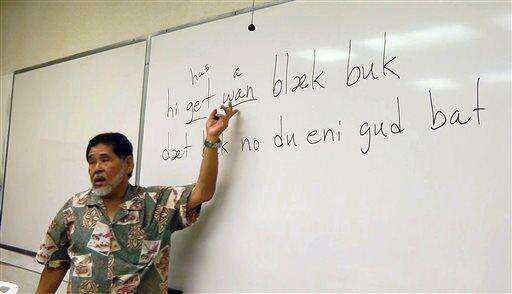 has a
hi get wan blæk buk
dæt no du eni gud bat